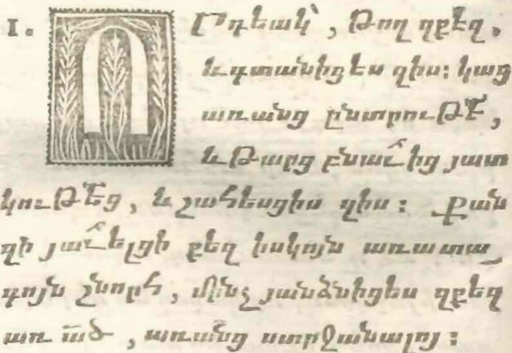 1. ՈՐդեակ՝, թող զքեզ,
և գտանիցես զիս։ կաց
առանց ընտրութե՟,
և թարց բնաւից յատ
կութե՟ց, և շահեսցիս զիս։ Քան
զի յաւելցի քեզ իսկոյն առատա֊
գոյն շնորհ, մինչ յանձնիցես զքեզ
առ ա՟ծ, առանց ստրջանալոյ։